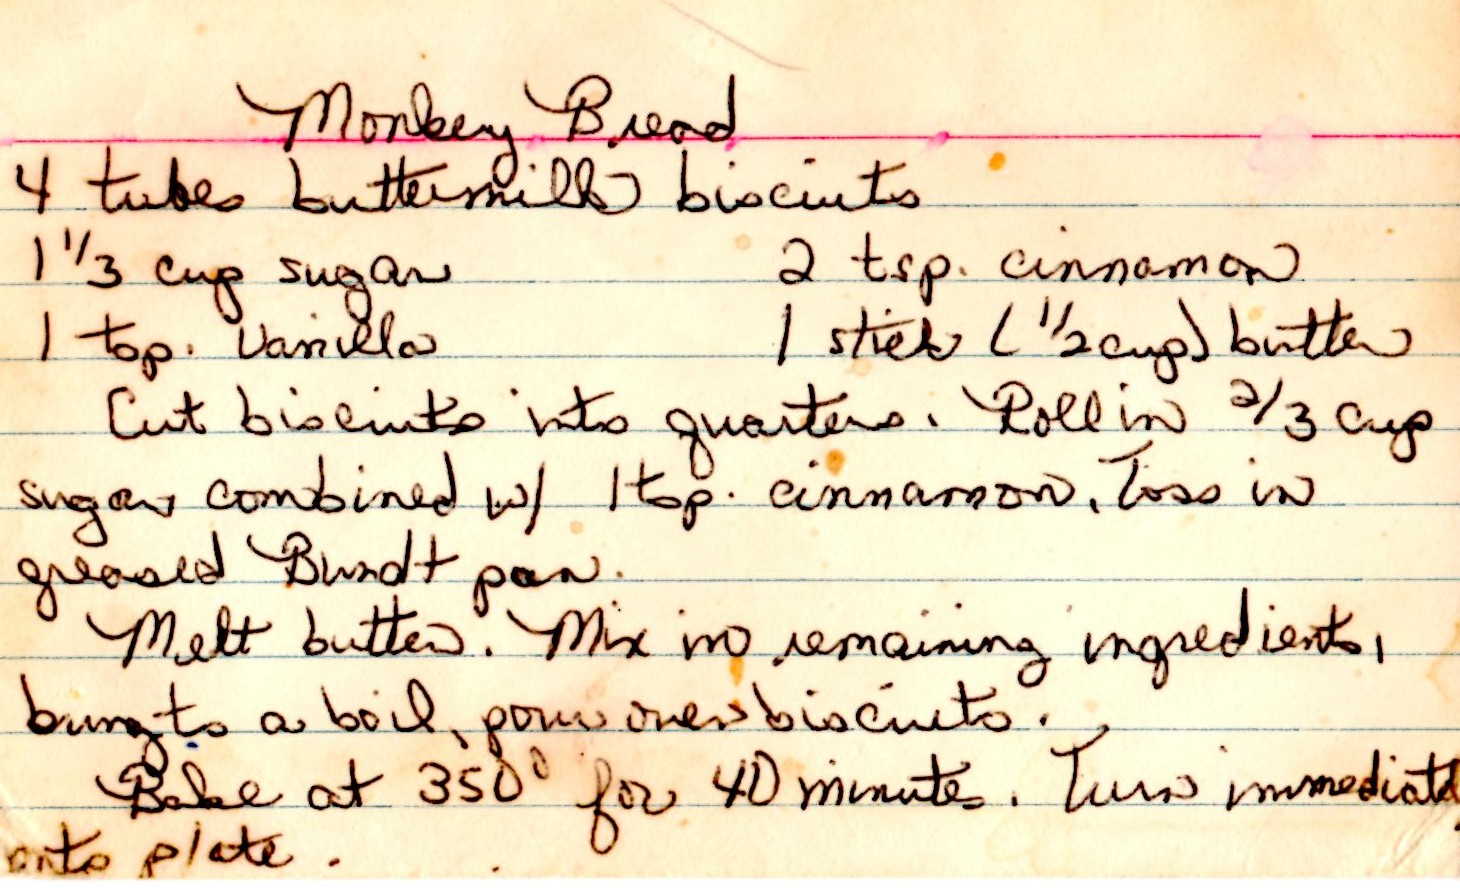 Monkey Bread
4 tubes buttermilk biscuits
1 1/3 cup sugar 2 tsp. cinnamon
1 tsp. vanilla 1 stick (1/2 cup) butter
Cut biscuits into quarters. Roll in 2/3 cup
sugar combined w/ 1 tsp. cinnamon. Toss in
greased Bundt pan.
Melt butter. Mix in remaining ingredients,
bring to a boil, pour over biscuits.
Bake at 350° for 40 minutes. Turn immediately
onto plate.